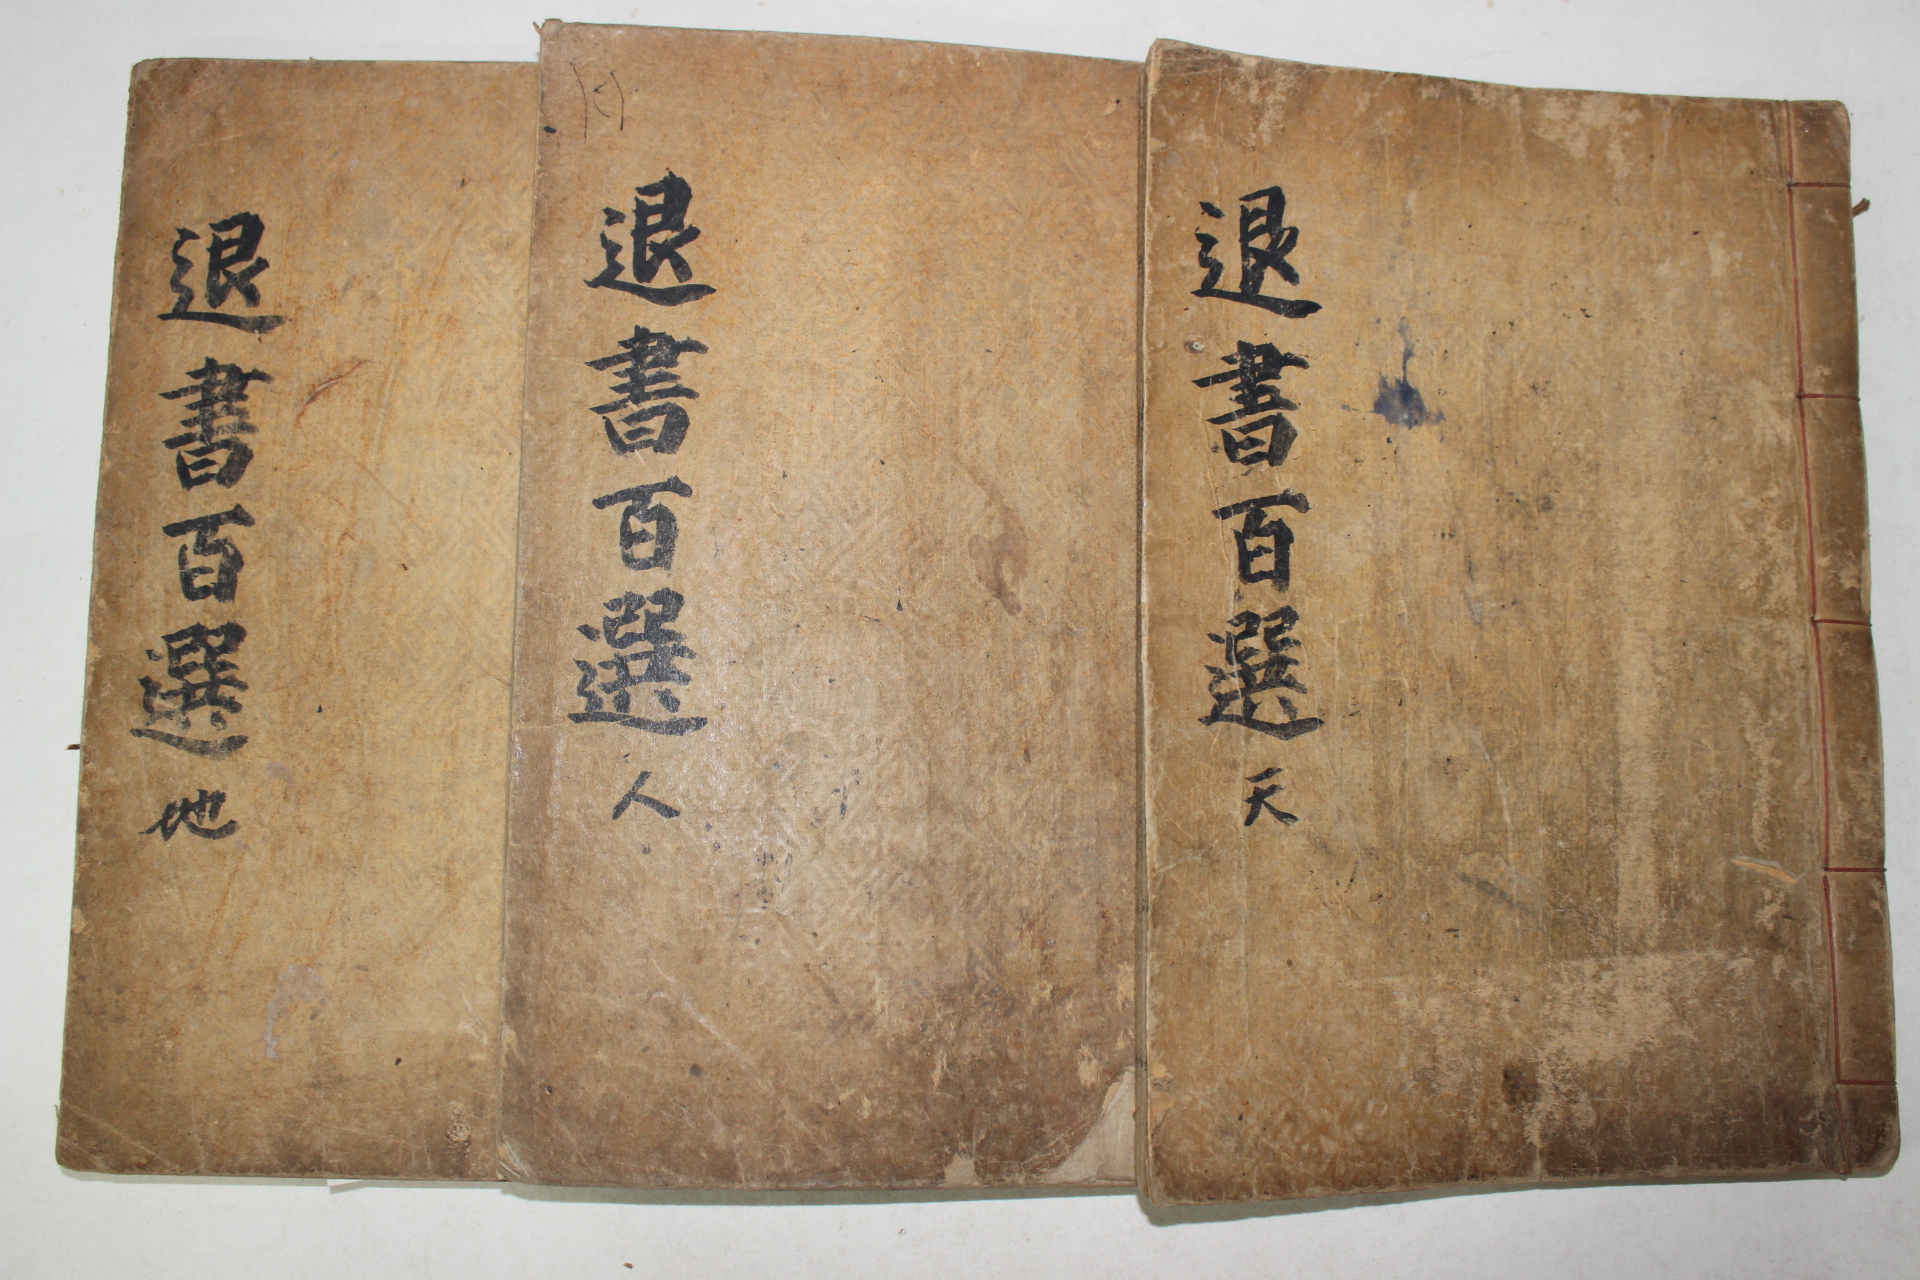 退書百選 天
退書百選 人
退書百選 地